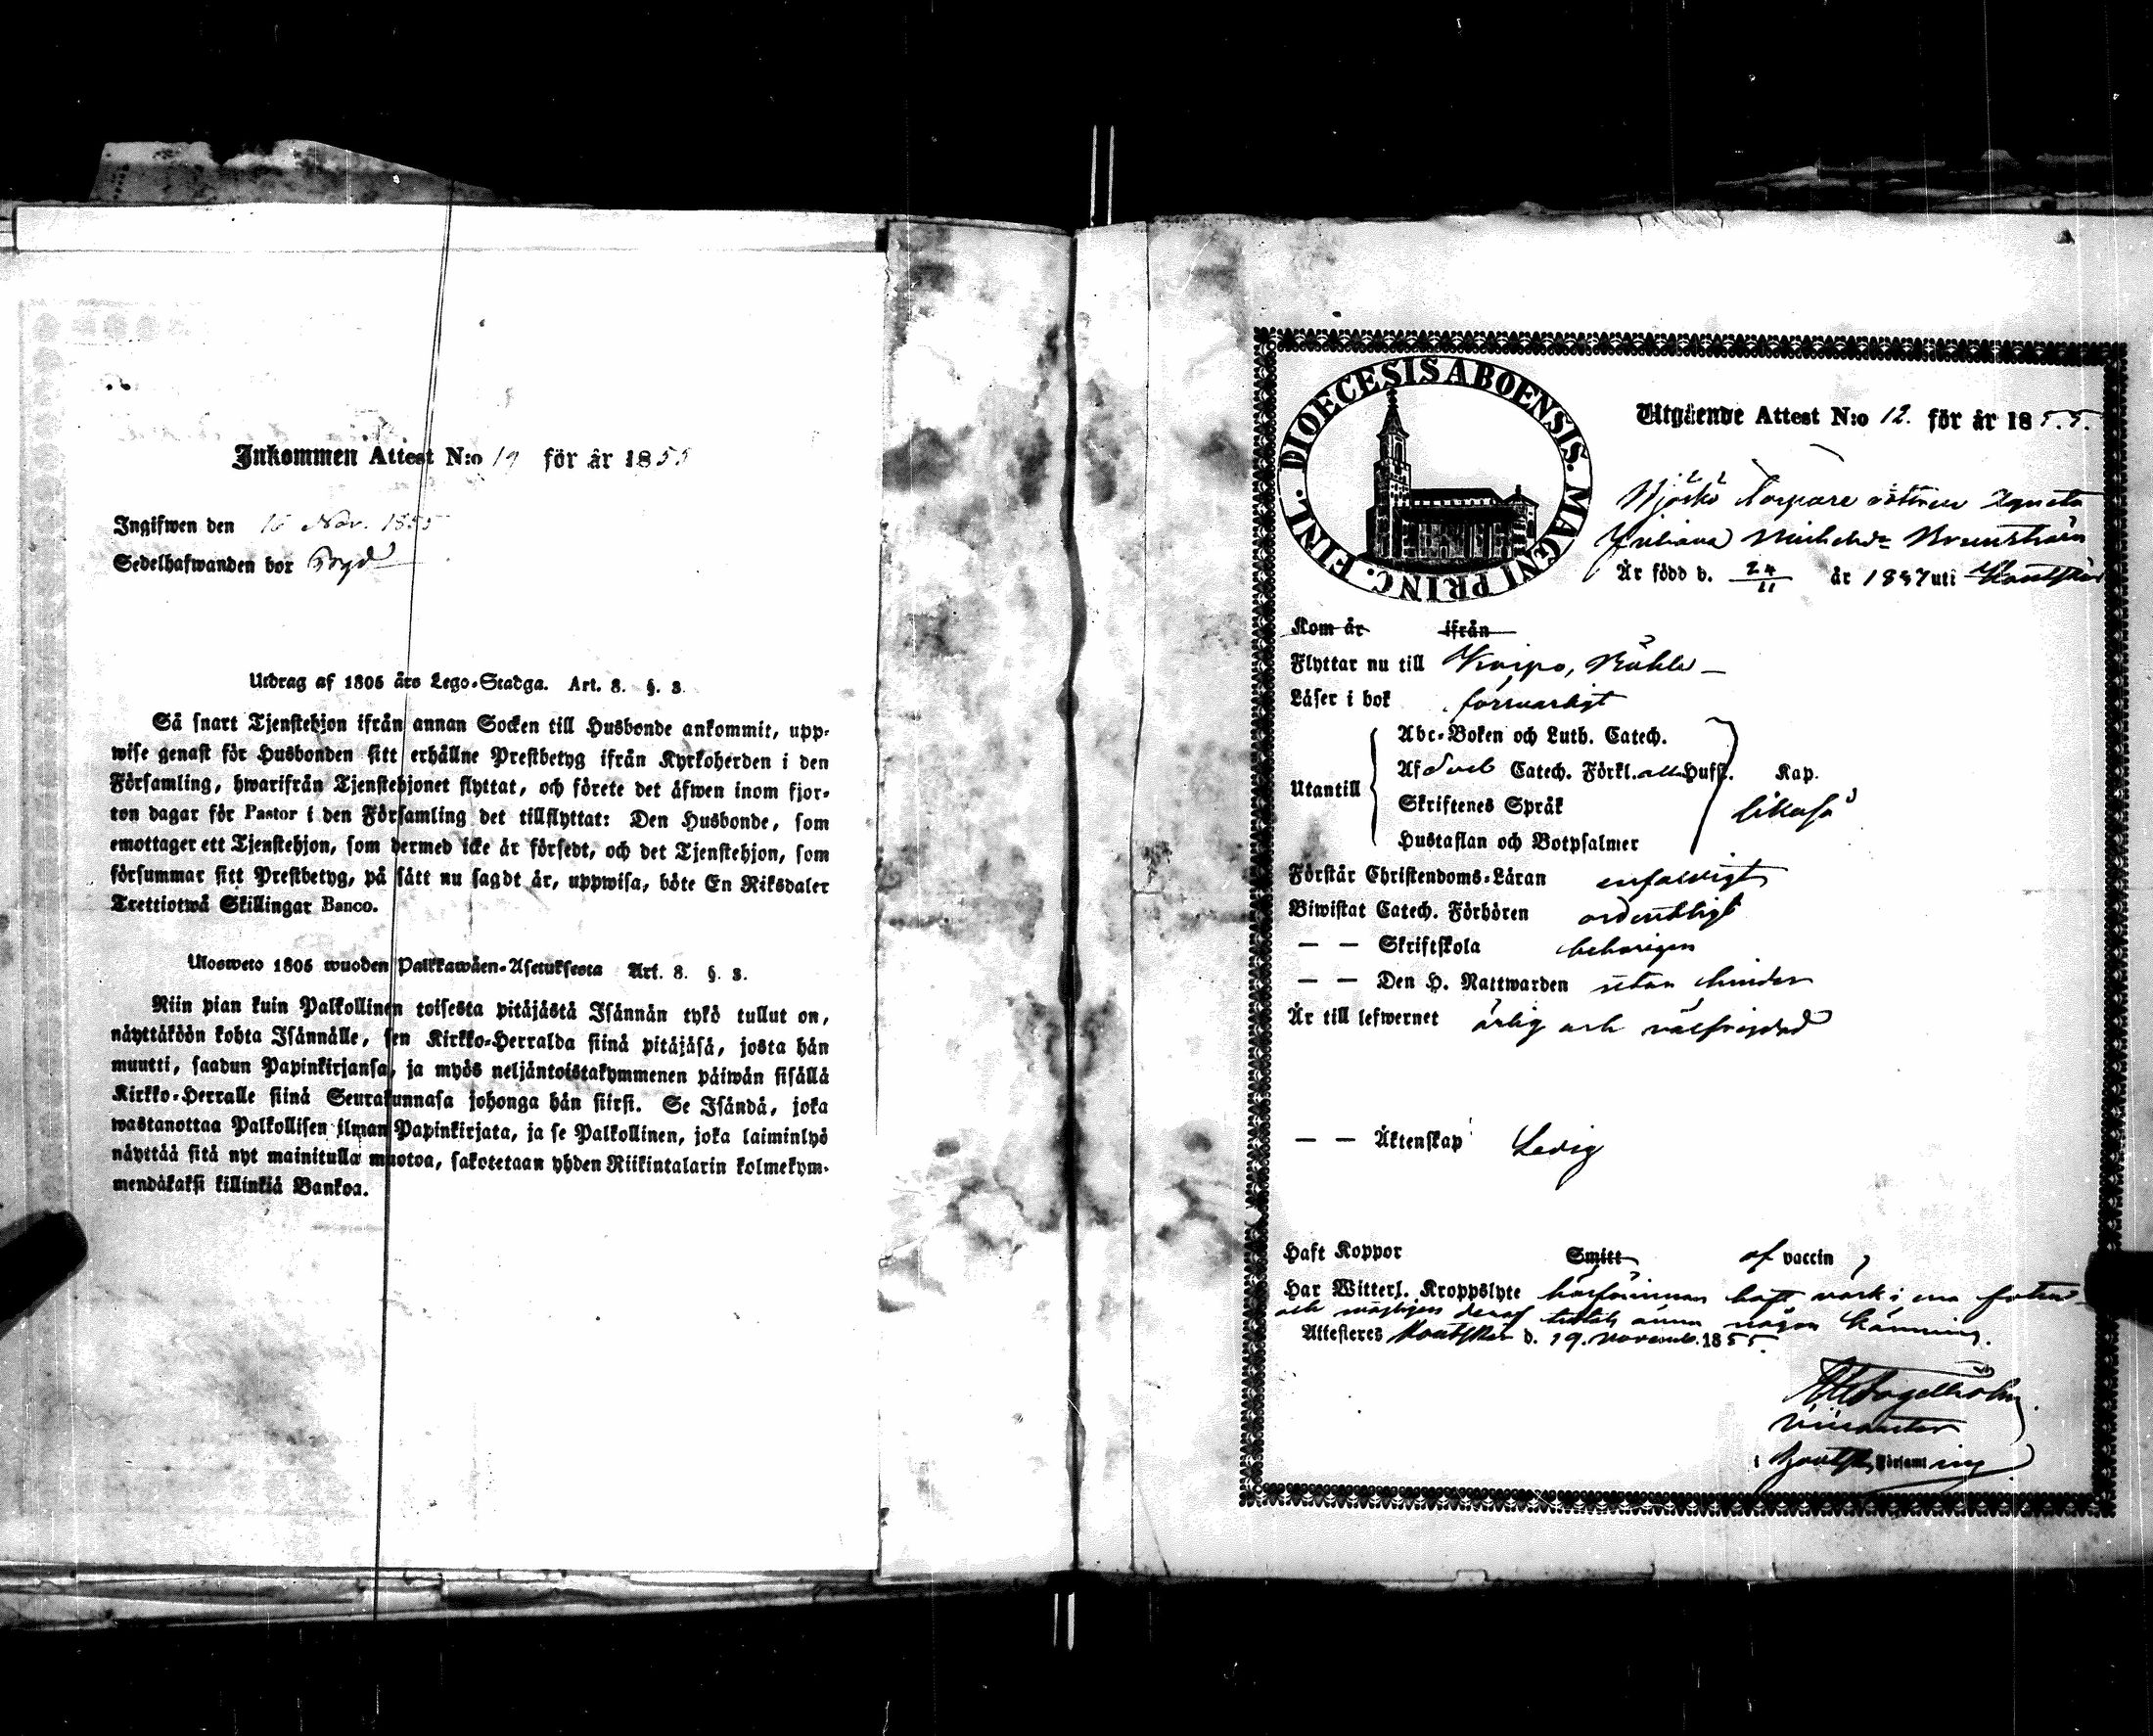 Inkommen Attest N:o 19 för år 1855
Ingifwen den 16 Nov. 1855
Sedelhafwanden bor
Utdrag af 1805 års Lego-Stadga. Art. 8. §. 3.
Så snart Tjenstehjon ifrån annan Socken till Husbonde ankommit, upp-
wise genast för Husbonden sitt erhållne Prestbetyg ifrån Kyrkoherden i den
Församling, hwarifrån Tjenstehjonet flyttat, och förete det äfwen inom fjor-
ton dagar för Pastor i den Församling det tillflyttat: Den Husbonde, som
emottager ett Tjenstehjon, som dermed icke är försedt, och det Tjenstehjon, som
försummar sitt Prestbetyg, på sätt nu sagdt är, uppwisa, böte En Riksdaler
Trettiotwå Skillingar Banco.
Ulosweto 1805 wuoden Palkkawäen-Asetuksesta Art. 8. §. 3.
Niin pian kuin Palkollinen toisesta pitäjästä Isännän tykö tullut on,
näyttäköön kohta Isännälle, sen Kirkko-Herralda siinä pitäjäsä, josta hän
muutti, saadun Papinkirjansa, ja myös neljäntoistakymmenen päiwän sisällä
Kirkko-Herralle siinä Seurakunnasa johonga hän siirsi. Se Isändä, joka
wastanottaa Palkollisen ilman Papinkirjata, ja se Palkollinen, joka laiminlyö
näyttää sitä nyt mainitulla muotoa, sakotetaan yhden Riikintalarin kolmekym-
mendäkaksi killinkiä Bankoa.
DIOECESIS ABOENSIS. MAGNI PRINC. FINL.
Utgående Attest N:o 12. för år 1855.
Juliana
Är född d. 24/11 år 1837 uti Houtskär
Kom år ifrån
Flyttar nu till
Läser i bok försvarligt
Abc-Boken och Luth. Catech.
Utantill Af Sveb Catech. Förkl. Hufst. Kap.
Skriftenes Språk likaså
Hustaflan och Botpsalmer
Förstår Christendoms-Läran enfaldigt
Biwistat Catech. Förhören ordentligt
— — Skriftskola behörigen
— — Den H. Nattwarden utan hinder
Är till lefwernet ärlig och välfrejdad
— — Äktenskap Ledig
Haft Koppor Smitt af vaccin
Har Witterl. Kroppslyte härförinnan haft värk i ena foten
och möjligen deraf ännu någon känning.
Attesteres Houtskär d. 19. Novemb. 1855.
i Houtsk. Församling